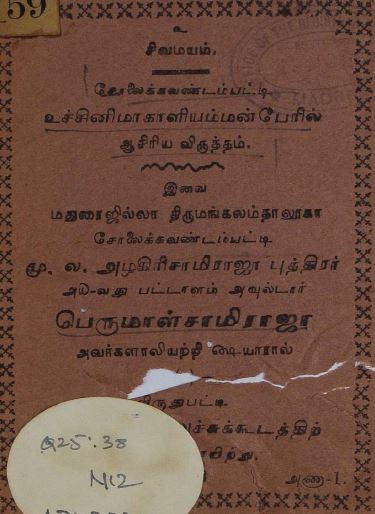 159
உ
சிவமயம்.
சோலைக்கவண்டம்பட்டி
உச்சினிமாகாளியம்மன்பேரில்
ஆசிரிய விருத்தம்.
இவை
மதுரைஜில்லா திருமங்கலம்தாலூகா
சோலைக்கவண்டம்பட்டி
மு. ல. அழகிரிசாமிராஜா புத்திரர்
பட்டாளம் அவுல்டார்
பெருமாள்சாமிராஜா
அவர்களாலியற்றி ஷையாரால்
விருதுபட்டி
கூடத்திற்
அணா-1.
Q25:38
N12